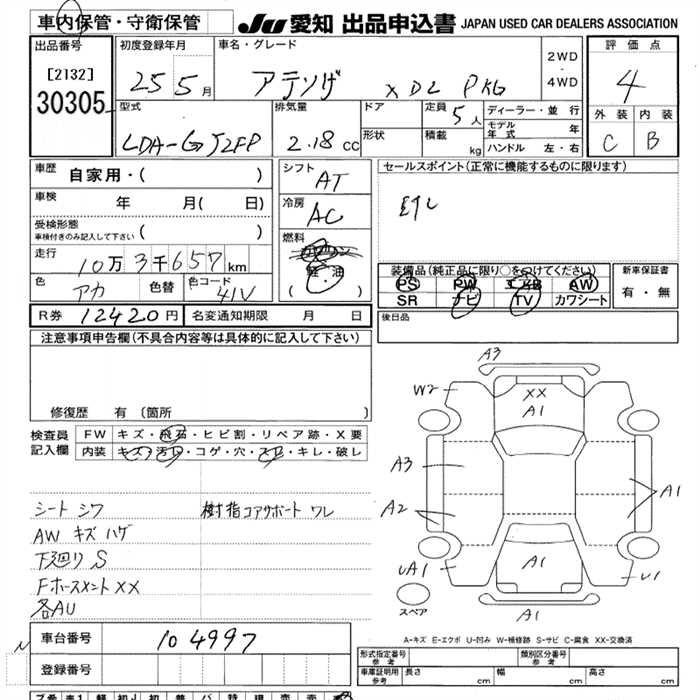 車内保管・守衛保管 JU 愛知 出品申込書 JAPAN USED CAR DEALERS ASSOCIATION
出品番号 初度登録年月 車名・グレード 2WD・4WD 評価点
[2132] 25 5月 アテンザ XDL PKG 4
30305
型式 排気量 ドア 定員 5人 ディーラー・並行 外装 内装
モデル年式 年
LDA-GJ2FP 2.18cc 形状 積載 kg ハンドル 左・右 C B
車歴 自家用・( ) シフト AT セールスポイント(正常に機能するものに限ります)
車検 年 月( 日) 冷房 AC
受検形態 車検付きのみ記入して下さい ( )
燃料
走行 10万3千657km 軽・油 装備品(純正品に限り○をつけてください) 新車保証書
色 アカ 色替 色コード 41V ( ) PS PW エアB AW 有・無
SR ナビ TV カワシート
R券 12420円 名変通知期限 月 日 後日品
注意事項申告欄(不具合内容等は具体的に記入して下さい)
A3
W2 XX
A1
修復歴 有(箇所
検査員 FW キズ・飛石・ヒビ割・リペア跡・X要
記入欄 内装 キズ・汚れ・コゲ・穴・スレ・キレ・破レ
A3
A1
A2
シート シワ 樹指コアサポート ワレ
AW キズ ハゲ
下廻り S
A1
UA1 U1
Fホースメント XX
各AU
スペア
A1
A-キズ E-エクボ U-凹み W-補修跡 S-サビ C-腐食 XX-交換済
車台番号 104997
登録番号
形式指定番号 参考 類別区分番号 参考
車庫証明用 参考 長さ cm 幅 cm 高さ cm